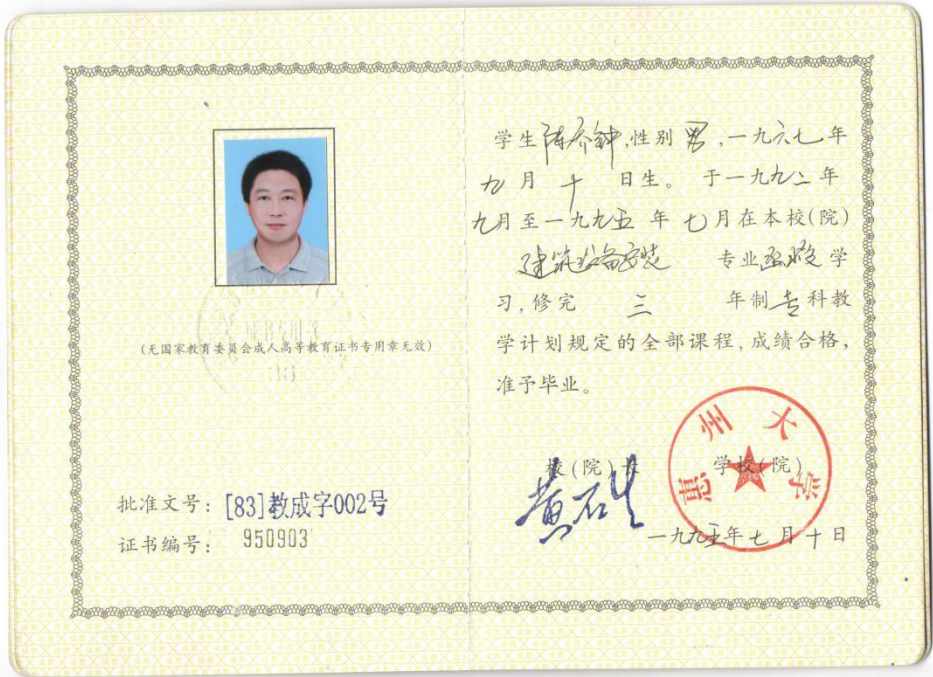 (无国家教育委员会成人高等教育证书专用章无效)
批准文号: [83]教成字002号
证书编号: 950903
学生陈乔钟,性别 男,一九六七年
九 月 十 日生。于一九九二年
九月至一九九五 年 七月在本校(院)
建筑设备安装 专业函授学
习,修完 三 年制专科教
学计划规定的全部课程,成绩合格,
准予毕业。
校(院)长 学校(院)
黄石生
惠州大学
一九九五年七月十日